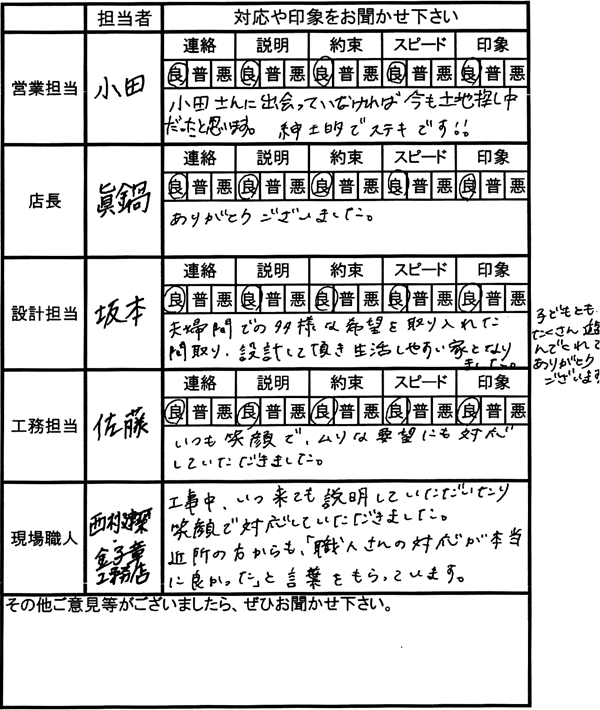 担当者 対応や印象をお聞かせ下さい
営業担当 小田
連絡 説明 約束 スピード 印象
良 普 悪 良 普 悪 良 普 悪 良 普 悪 良 普 悪
小田さんに出会っていなければ今も土地探し中
だったと思います。 紳士的でステキです!!
店長 眞鍋
連絡 説明 約束 スピード 印象
良 普 悪 良 普 悪 良 普 悪 良 普 悪 良 普 悪
ありがとうございました。
設計担当 坂本
連絡 説明 約束 スピード 印象
良 普 悪 良 普 悪 良 普 悪 良 普 悪 良 普 悪
夫婦間での多様な希望を取り入れた
間取り、設計して頂き生活しやすい家となり
ました。
子どもとも
たくさん遊
んでくれて
ありがとう
ございます
工務担当 佐藤
連絡 説明 約束 スピード 印象
良 普 悪 良 普 悪 良 普 悪 良 普 悪 良 普 悪
いつも笑顔で、ムリな要望にも対応
していただきました。
現場職人
西村建築
・
金子章
工務店
工事中、いつ来ても説明していただいたり
笑顔で対応していただきました。
近所の方からも、「職人さんの対応が本当
に良かった」と言葉をもらっています。
その他ご意見等がございましたら、ぜひお聞かせ下さい。